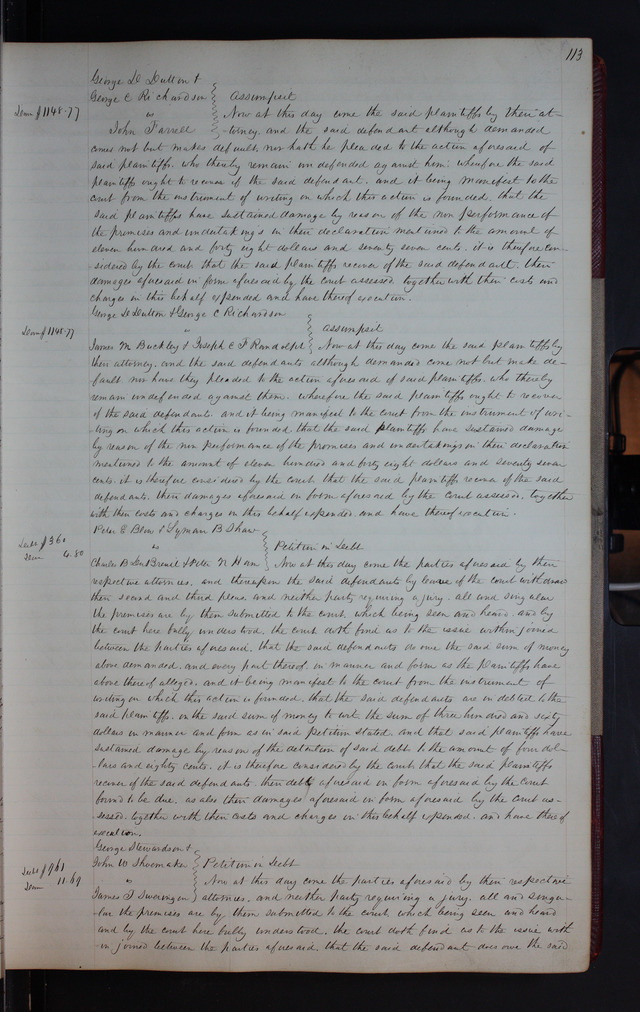 113
George D Dutton &
George C Richardson } Assumpsit
Dam $1148.77 vs Now at this day come the said plaintiffs by their at-
John Farrell torney and the said defendant although demanded
comes not but makes default, nor hath he pleaded to the action aforesaid of
said plaintiffs, who thereby remain undefended against him: wherefore the said
plaintiffs ought to recover of the said defendant. and it being manifest to the
court from the instrument of writing on which this action is founded, that the
said plaintiffs have sustained damage by reason of the non performance of
the promises and undertakings in their declaration mentioned to the amount of
eleven hundred and forty eight dollars and seventy seven cents. it is therefore con-
sidered by the court that the said plaintiffs recover of the said defendant. their
damages aforesaid in form aforesaid by the court assessed together with their costs and
charges in this behalf expended and have thereof execution.
George D Dutton & George C Richardson
Dam $1148.77 " } Assumpsit
James M Buckley & Joseph C F Randolph Now at this day come the said plaintiffs by
their attorney. and the said defendants although demanded come not but make de-
fault nor have they pleaded to the action aforesaid of said plaintiffs. who thereby
remain undefended against them. wherefore the said plaintiffs ought to recover
of the said defendants. and it being manifest to the Court from the instrument of wri-
ting on which this action is founded, that the said plaintiffs have sustained damage
by reason of the non performance of the promises and undertakings in their declaration
mentioned to the amount of eleven hundred and forty eight dollars and seventy seven
cents. it is therefore considered by the court that the said plaintiffs recover of the said
defendants. their damages aforesaid in form aforesaid by the Court assessed. together
with their costs and charges in this behalf expended. and have thereof execution.
Peter E Blow & Lyman B Shaw
Debt $360 vs } Petition in Debt
Dam 4.80
Charles B & Peter N Ham Now at this day come the parties aforesaid by their
respective attornies. and thereupon the said defendants by leave of the court withdraw
their second and third pleas. and neither party requiring a jury. all and singular
the premises are by them submitted to the court. which being seen and heard. and by
the court here fully understood. the court doth find as to the issue within joined
between the parties aforesaid. that the said defendants do owe the said sum of money
above demanded. and every part thereof. in manner and form as the plaintiffs have
above thereof alleged. and it being manifest to the court from the instrument of
writing on which this action is founded. that the said defendants are indebted to the
said plaintiffs. in the said sum of money to wit. the sum of three hundred and sixty
dollars in manner and form as in said petition stated. and that said plaintiffs have
sustained damage by reason of the detention of said debt to the amount of four dol-
-lars and eighty cents. it is therefore considered by the court that the said plaintiffs
recover of the said defendants. their debt aforesaid in form aforesaid by the Court
found to be due. as also their damages aforesaid in form aforesaid by the Court as-
-sessed. together with their costs and charges in this behalf expended. and have thereof
execution.
George Stewardson &
Debt $961 John W Shoemaker } Petition in Debt
Dam 11.69 " Now at this day come the parties aforesaid by their respective
James T Swearingen attornies. and neither party requiring a jury. all and singu-
-lar the premises are by them submitted to the court. which being seen and heard
and by the court here fully understood. the court doth find as to the issue with-
-in joined between the parties aforesaid. that the said defendant does owe the said